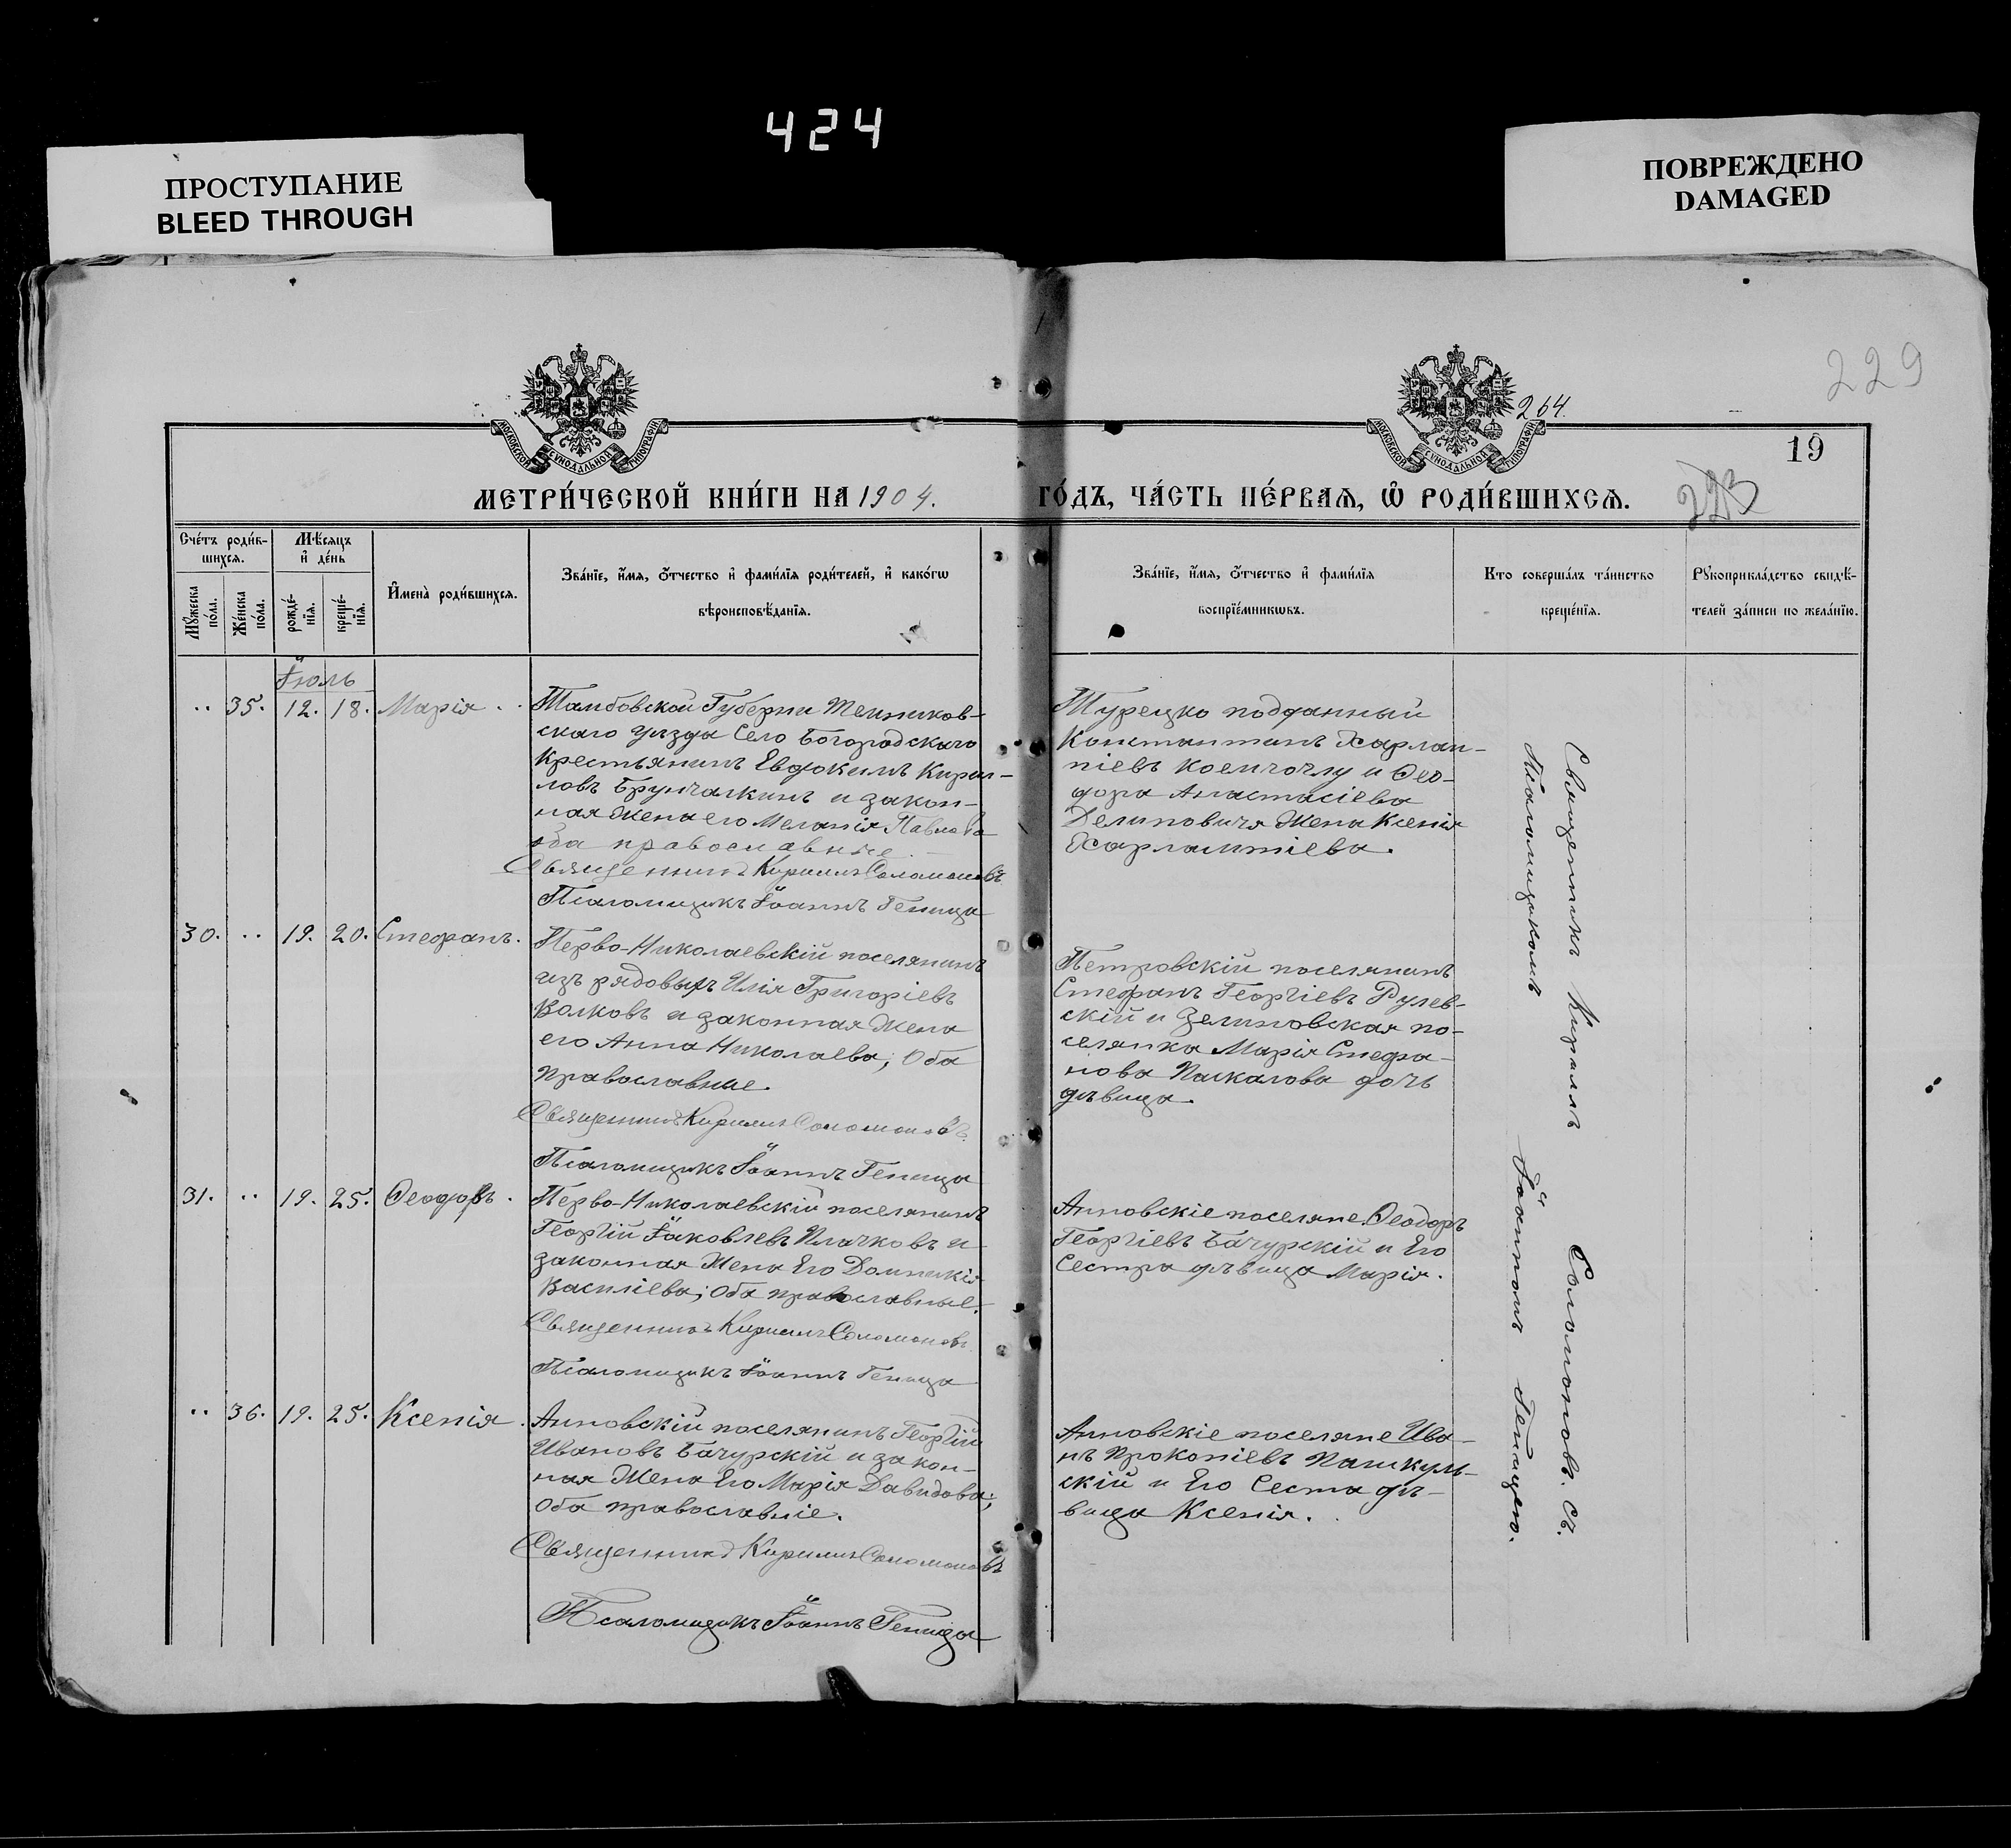 424
ПРОСТУПАНИЕ
BLEED THROUGH
ПОВРЕЖДЕНО
DAMAGED
229
264.
19
МОСКОВСКОЙ СѴНОДАЛЬНОЙ ТИПОГРАФІИ
МОСКОВСКОЙ СѴНОДАЛЬНОЙ ТИПОГРАФІИ
МЕТРИ́ЧЕСКОЙ КНИ́ГИ НА 1904.
ГО́ДЪ, ЧА́СТЬ ПЕ́РВАѦ, Ѡ҆ РОДИ́ВШИХСѦ.
223
Сче́тъ роди́в-
шихсѧ.
Мꙋ́жеска по́ла.
Же́нска по́ла.
Мѣ́сѧцъ
и҆ де́нь
рожде́-
нїѧ.
креще́-
нїѧ.
И҆мена̀ роди́вшихсѧ.
Зва́нїе, и҆́мѧ, ѻ҆́тчество и҆ фами́лїѧ роди́телей, и҆ како́гѡ
вѣроисповѣ́данїѧ.
Зва́нїе, и҆́мѧ, ѻ҆́тчество и҆ фами́лїѧ
воспрїе́мникѡвъ.
Кто соверша́лъ та́инство
креще́нїѧ.
Рꙋкоприкла́дство свидѣ́-
телей за́писи по жела́нїю.
Іюль
.. 35. 12. 18. Марія.
Тамбовской Губерни Темников-
скаго уѣзда Село Богородскаго
Крестьянинъ Евдокимъ Кирил-
ловъ Брунчалкинъ и закон-
ная Жена его Меланія Павлова
оба православные.
Священникъ Кириллъ Соломоновъ
Псаломщикъ Іоаннъ Геница
Турецко подданный
Константинъ Харлам-
піевъ Коемчоглу и Ѳео-
дора Анастасіева
Делиповича Жена Ксенія
Харлампіева.
30. .. 19. 20. Стефанъ.
Перво-Николаевскій поселянинъ
изъ рядовыхъ Илія Григоріевъ
Волковъ и законная Жена
его Анна Николаева; Оба
православные.
Священникъ Кириллъ Соломоновъ.
Псаломщикъ Іоаннъ Геница
Петровскій поселянинъ
Стефанъ Георгіевъ Рулев-
скій и Зелиновская по-
селянка Марія Стефа-
нова Паскалова дочь
дѣвица.
31. .. 19. 25. Ѳеодоръ.
Перво-Николаевскій поселянинъ
Георгій Іаковлевъ Плачковъ и
законная Жена Его Домникія
Василіева; Оба православные.
Священникъ Кириллъ Соломоновъ
Псаломщикъ Іоаннъ Геница
Анновскіе поселяне Ѳеодоръ
Георгіевъ Бачурскій и Его
Сестра дѣвица Марія.
.. 36. 19. 25. Ксенія.
Анновскій поселянинъ Георгій
Ивановъ Бачурскій и закон-
ная Жена Его Марія Давидова;
Оба православніе.
Священникъ Кириллъ Соломоновъ
Псаломщикъ Іоаннъ Геница
Анновскіе поселяне Ива-
нъ Прокопіевъ Пашкуль-
скій и Его Сеста дѣ-
вица Ксенія.
Священникъ Кириллъ Соломоновъ. Съ.
Псаломщикомъ Іоанномъ Геницею.